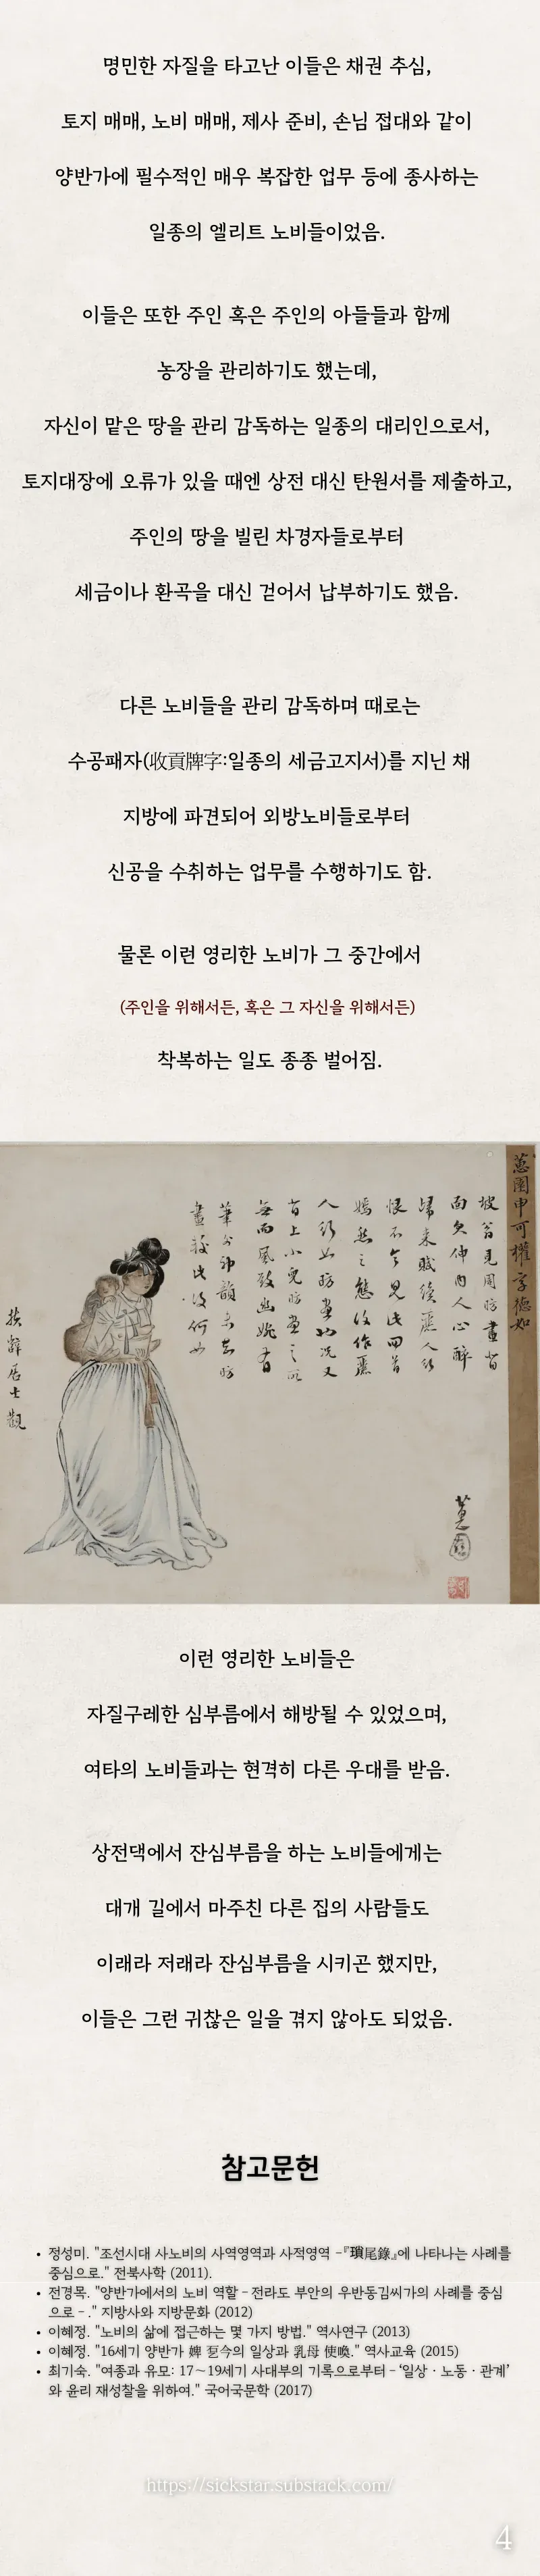 명민한 자질을 타고난 이들은 채권 추심,
토지 매매, 노비 매매, 제사 준비, 손님 접대와 같이
양반가에 필수적인 매우 복잡한 업무 등에 종사하는
일종의 엘리트 노비들이었음.
이들은 또한 주인 혹은 주인의 아들들과 함께
농장을 관리하기도 했는데,
자신이 맡은 땅을 관리 감독하는 일종의 대리인으로서,
토지대장에 오류가 있을 때엔 상전 대신 탄원서를 제출하고,
주인의 땅을 빌린 차경자들로부터
세금이나 환곡을 대신 걷어서 납부하기도 했음.
다른 노비들을 관리 감독하며 때로는
수공패자(收貢牌字:일종의 세금고지서)를 지닌 채
지방에 파견되어 외방노비들로부터
신공을 수취하는 업무를 수행하기도 함.
물론 이런 영리한 노비가 그 중간에서
(주인을 위해서든, 혹은 그 자신을 위해서든)
착복하는 일도 종종 벌어짐.
蕙園申可權字德如
坡翁見周昉畫背
面欠伸內人心醉
歸來賦續麗人行
恨不令見此回首
嫣然之態復作麗
人行如昉畫
首上小兒昉畫之所
無而風致幽婉
居士觀
蕙園
이런 영리한 노비들은
자질구레한 심부름에서 해방될 수 있었으며,
여타의 노비들과는 현격히 다른 우대를 받음.
상전댁에서 잔심부름을 하는 노비들에게는
대개 길에서 마주친 다른 집의 사람들도
이래라 저래라 잔심부름을 시키곤 했지만,
이들은 그런 귀찮은 일을 겪지 않아도 되었음.
참고문헌
• 정성미. "조선시대 사노비의 사역영역과 사적영역 -『瑣尾錄』에 나타나는 사례를
중심으로." 전북사학 (2011).
• 전경목. "양반가에서의 노비 역할 - 전라도 부안의 우반동김씨가의 사례를 중심
으로 - ." 지방사와 지방문화 (2012)
• 이혜정. "노비의 삶에 접근하는 몇 가지 방법." 역사연구 (2013)
• 이혜정. "16세기 양반가 婢 㐗今의 일상과 乳母 使喚." 역사교육 (2015)
• 최기숙. "여종과 유모: 17～19세기 사대부의 기록으로부터 - ‘일상 · 노동 · 관계’
와 윤리 재성찰을 위하여." 국어국문학 (2017)
https://sickstar.substack.com/
4